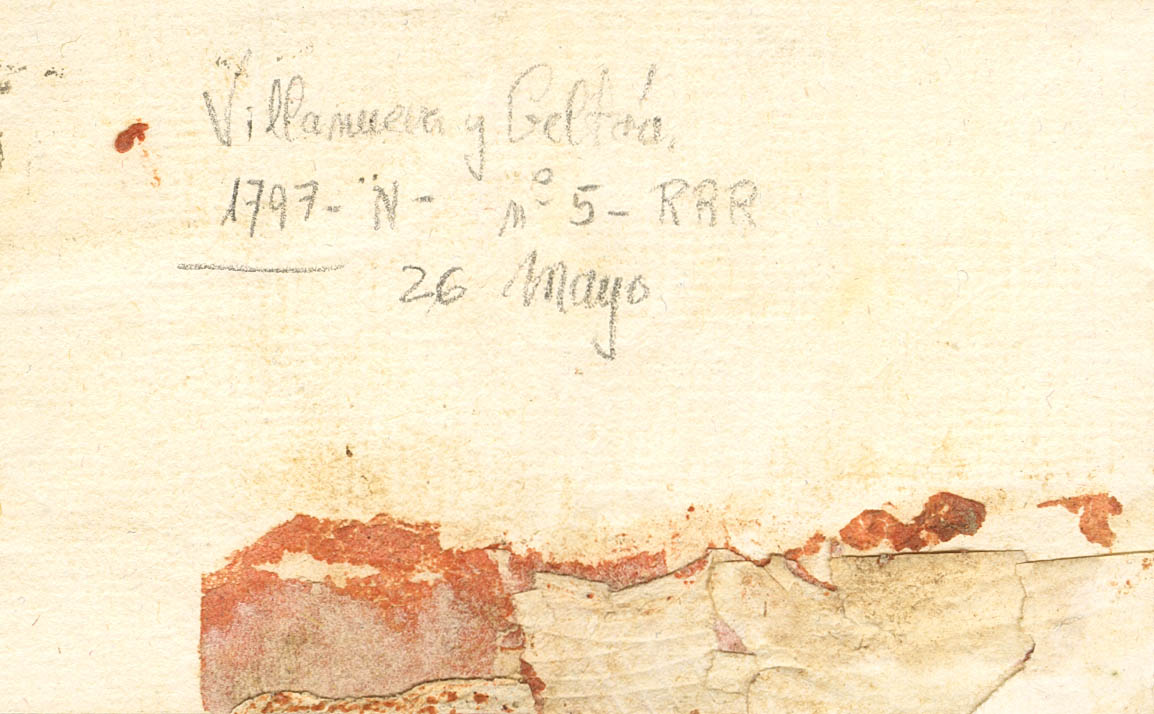 Villanueva y Geltrú.
1797- N- nº 5- RRR
26 Mayo